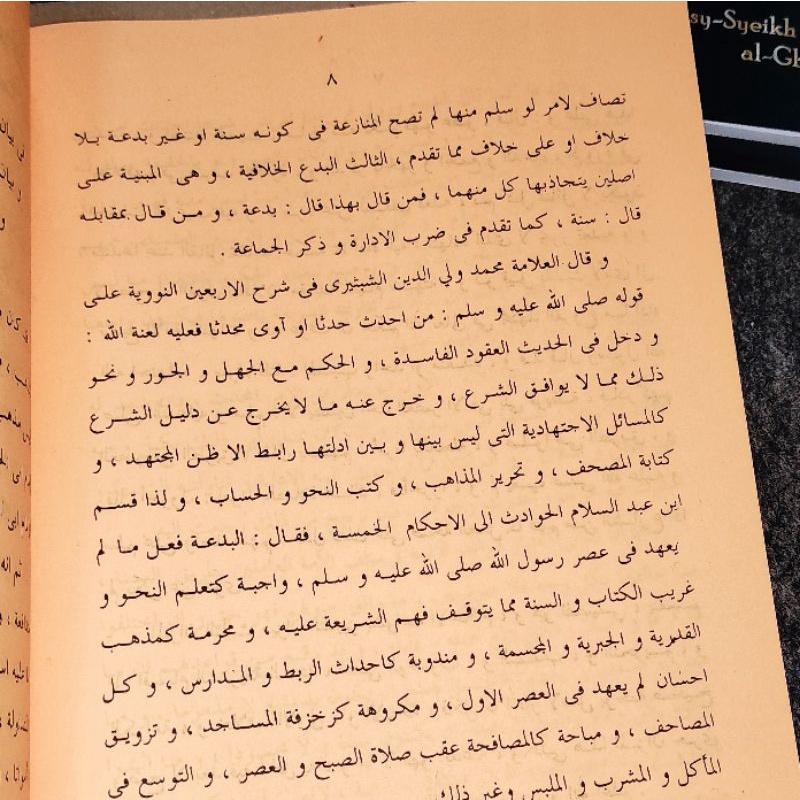 sy-Syeikh
al-Gh
٨
تصاف لامر لو سلم منها لم تصح المنازعة فى كونه سنة او غير بدعة بلا
خلاف او على خلاف مما تقدم ، الثالث البدع الخلافية ، و هى المبنية على
اصلين يتجاذبها كل منهما ، فمن قال بهذا قال : بدعة ، و من قال بمقابله
قال : سنة ، كما تقدم فى ضرب الادارة و ذكر الجماعة .
و قال العلامة محمد ولي الدين الشبثيرى فى شرح الاربعين النووية على
قوله صلى الله عليه و سلم : من احدث حدثا او آوى محدثا فعليه لعنة الله :
و دخل فى الحديث العقود الفاسدة ، و الحكم مع الجهل و الجور و نحو
ذلك مما لا يوافق الشرع ، و خرج عنه ما لا يخرج عن دليل الشرع
كالمسائل الاجتهادية التى ليس بينها و بين ادلتها رابط الا ظن المجتهد ، و
كتابة المصحف ، و تحرير المذاهب ، و كتب النحو و الحساب ، و لذا قسم
ابن عبد السلام الحوادث الى الاحكام الخمسة ، فقال : البدعة فعل ما لم
يعهد فى عصر رسول الله صلى الله عليه و سلم ، واجبة كتعلم النحو و
غريب الكتاب و السنة مما يتوقف فهم الشريعة عليه ، و محرمة كمذهب
القدرية و الجبرية و المجسمة ، و مندوبة كاحداث الربط و المدارس ، و كل
احسان لم يعهد فى العصر الاول ، و مكروهة كزخزفة المساجد ، و تزويق
المصاحف ، و مباحة كالمصافحة عقب صلاة الصبح و العصر ، و التوسع فى
المأكل و المشرب و الملبس وغير ذلك